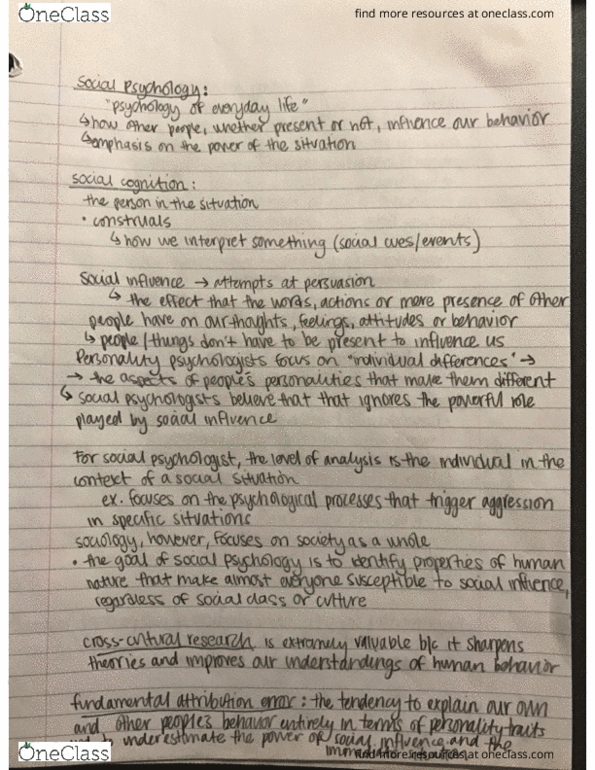 OneClass
find more resources at oneclass.com
Social Psychology:
"psychology of everyday life"
↳how other people, whether present or not, influence our behavior
↳emphasis on the power of the situation
social cognition:
the person in the situation
• construals
↳ how we interpret something (social cues/events)
Social influence → attempts at persuasion
↳ the effect that the words, actions or mere presence of other
people have on our thoughts, feelings, attitudes or behavior
↳ people/things don't have to be present to influence us
Personality psychologists focus on "individual differences" →
→ the aspects of people's personalities that make them different
↳ social psychologists believe that that ignores the powerful role
played by social influence
For social psychologist, the level of analysis is the individual in the
context of a social situation
ex. focuses on the psychological processes that trigger aggression
in specific situations
sociology, however, focuses on society as a whole
• the goal of social psychology is to identify properties of human
nature that make almost everyone susceptible to social influence,
regardless of social class or culture
cross-cultural research is extremely valuable b/c it sharpens
theories and improves our understandings of human behavior
fundamental attribution error: the tendency to explain our own
and other people's behavior entirely in terms of personality traits
underestimate the power of social influence and the
OneClass
find more resources at oneclass.com